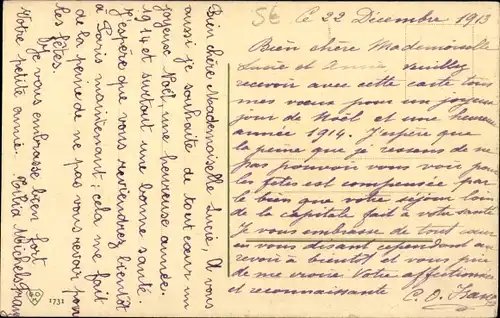 Bien chère Mademoiselle Lucie, A vous
aussi je souhaite de tout cœur un
joyeux Noël, une heureuse année
1914 et surtout une bonne santé.
J'espère que vous reviendrez bientôt
à Paris maintenant; cela me fait
de la peine de ne pas vous revoir pour
les fêtes.
Je vous embrasse bien fort
Votre petite amie.
1731
Ce 22 Décembre 1913
Bien chère Mademoiselle
Lucie et Amie veuillez
recevoir avec cette carte tous
mes vœux pour un joyeux
jour de Noël et une heureuse
année 1914. J'espère que
la peine que je ressens de ne
pas pouvoir vous voir pour
les fêtes est compensée par
le bien que votre séjour loin
de la capitale fait à votre santé
Je vous embrasse de tout cœur
en vous disant cependant au
revoir à bientôt et vous prie
de me croire Votre affectionnée
et reconnaissante C. O.